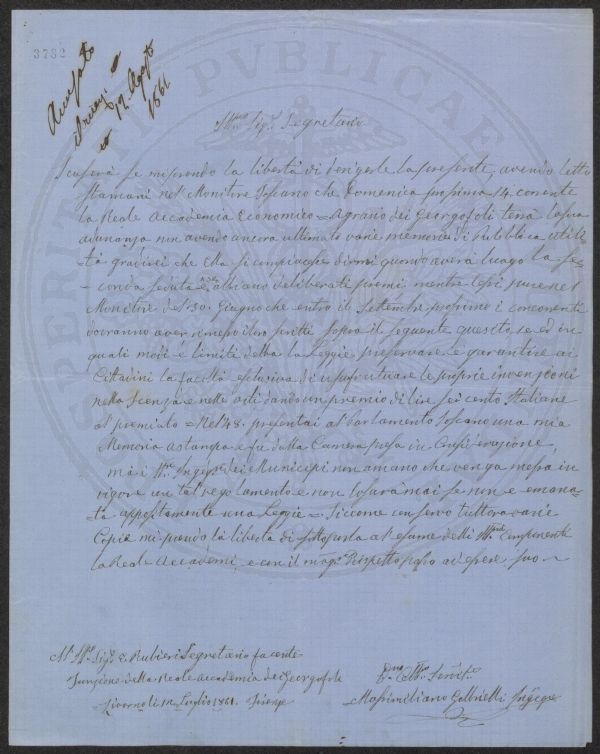 3782
Accusato
il 12 Agosto
1861
SPERITATI PVBLICAE
Illmo Sigr Segretario
Scuserà se mi prendo la libertà di dirigerle la presente, avendo letto
stamani nel Monitore Toscano che Domenica prossima 14 corrente
la Reale Accademia Economico = Agraria dei Georgofoli terrà la sua
adunanza non avendo ancora ultimato varie memorie di Pubblica utili-
tà gradirei che Ella si compiacesse dirmi quando averà luogo la se-
conda seduta e se abbiano deliberati premi mentre lessi pure nel
Monitore del 30. Giugno che entro il Settembre prossimo i concorrenti
dovranno aver rimesso i loro scritti sopra il seguente quesito, se ed in
quali modi e limiti debba la Leggie preservare e garantire ai
Cittadini la facoltà esclusiva di usufruttuare le proprie invenzioni
nelle Scenze e nelle arti dando un premio di lire sei cento Italiane
al premiato = Nel 48. presentai al Parlamento Toscano una mia
Memoria a stampa e fu dalla Camera presa in Considerazione,
ma i Ingegri dei Municipi non amano che venga messa in
vigore un tal regolamento e non lo farà mai se non e emana-
ta appositamente una Leggie = Siccome conservo tuttora varie
Copie mi prendo la libertà di sottoporla al esame delli Componenti
la Reale Accademi, e con il magr Rispetto passo ad essere, suo
Sigr E. Rubieri Segretario facente
Funzione della Reale Accademia dei Georgofoli
Livorno li 12 Luglio 1861. Firenze
Massimiliano Gabrielli Ingegre